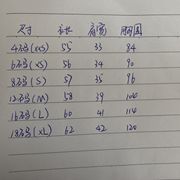 衣长 肩宽 胸围
4码(XXS) 55 33 84
6码(XS) 56 34 90
8码(S) 57 35 96
12码(M) 58 39 104
16码(L) 60 41 114
18码(XL) 62 42 120